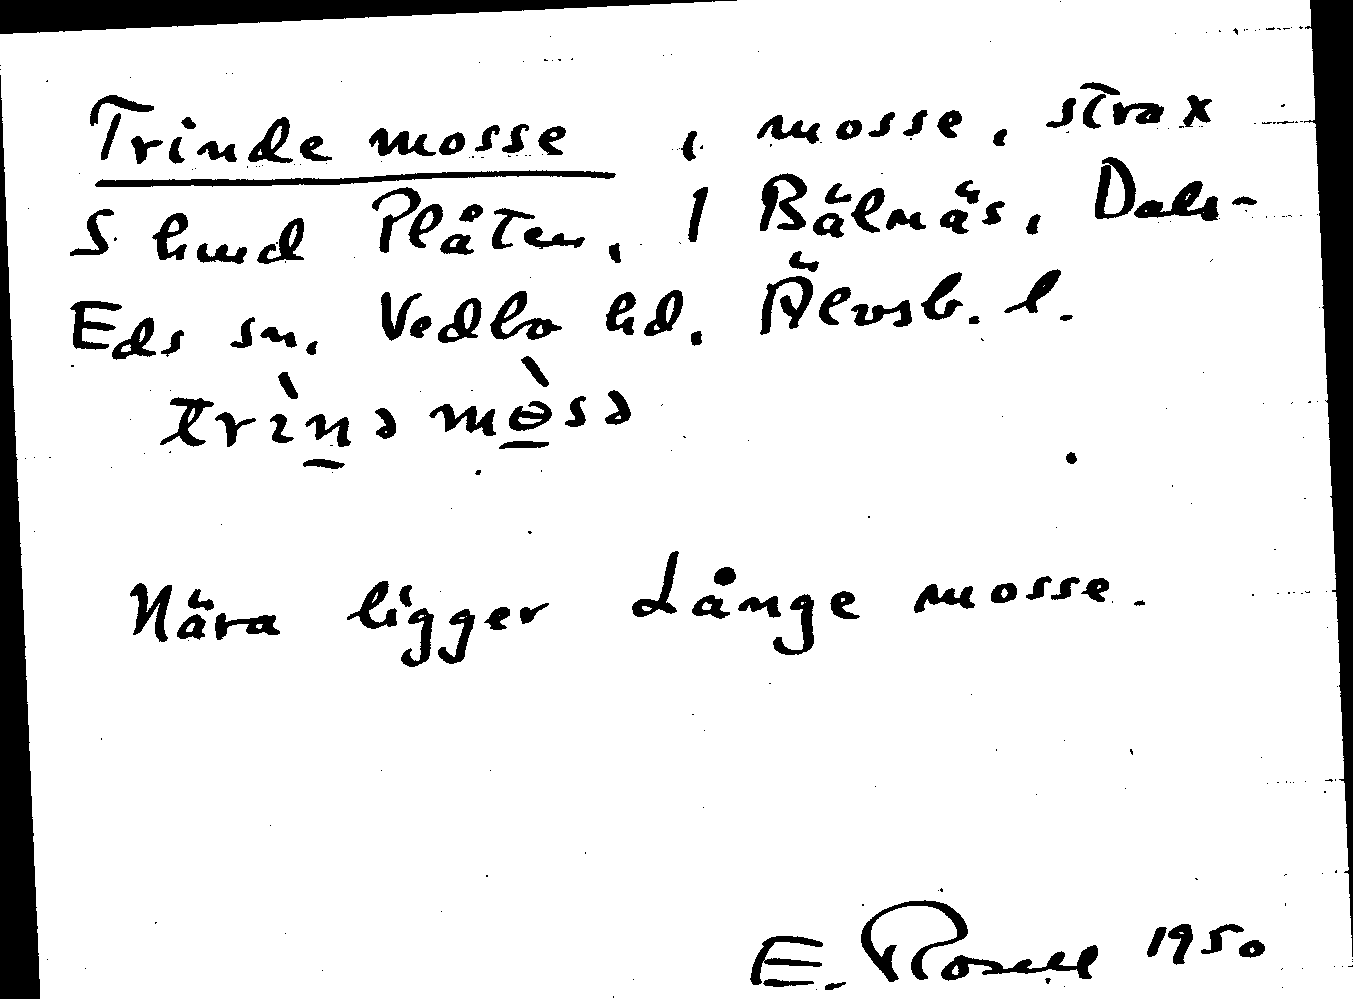 Trinde mosse, mosse, strax
S hmd Plåten, 1 Bälnäs, Dals-
Eds sn, Vedbo hd. Älvsb. l.
trìnə mɵ̀sə
Nära ligger Långe mosse.
E. Rosell 1950